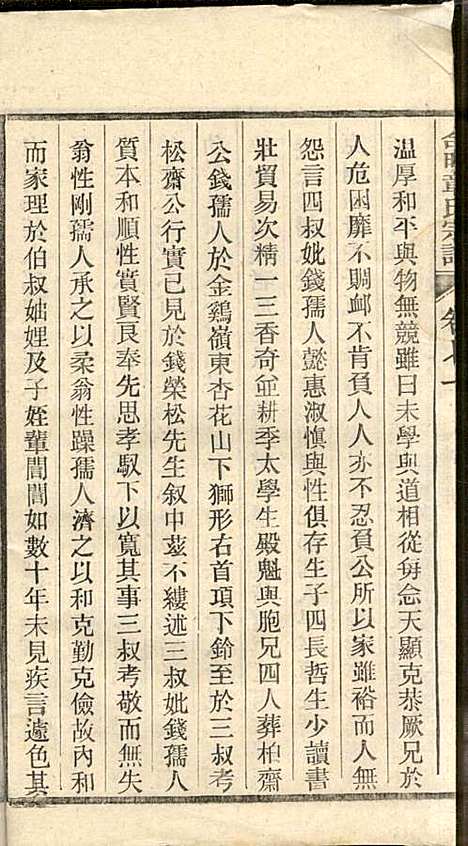 章氏宗譜 卷七
温厚和平與物無競雖曰未學與道相從每念天顯克恭厥兄於
人危困靡不賙卹不肯負人人亦不忍負公所以家雖裕而人無
怨言四叔妣錢孺人懿惠淑慎與性俱存生子四長哲生少讀書
壯貿易次精一三香奇並耕季太學生殿魁與胞兄四人葬柏齋
公錢孺人於金鷄嶺東杏花山下獅形右首項下鈴至於三叔考
松齋公行實已見於錢榮松先生叙中兹不縷述三叔妣錢孺人
質本和順性實賢良奉先思孝馭下以寬其事三叔考敬而無失
翁性剛孺人承之以柔翁性躁孺人濟之以和克勤克儉故内和
而家理於伯叔妯娌及子姪輩誾誾如數十年未見疾言遽色其